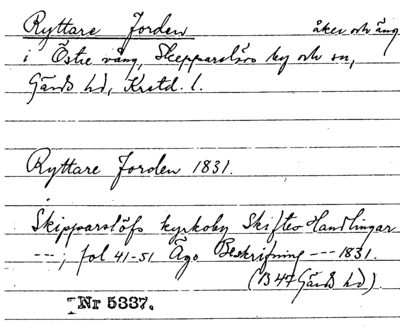 Ryttare Jorden åker och äng
i Östre vång, Skepparslövs by och sn,
Gärds hd, Kristd. l.
Ryttare Jorden 1831.
Skipparslöfs kyrkoby Skiftes Handlingar
---, fol 41-51 Ägo Beskrifning --- 1831.
(B 47 Gärds hd).
Nr 5337.